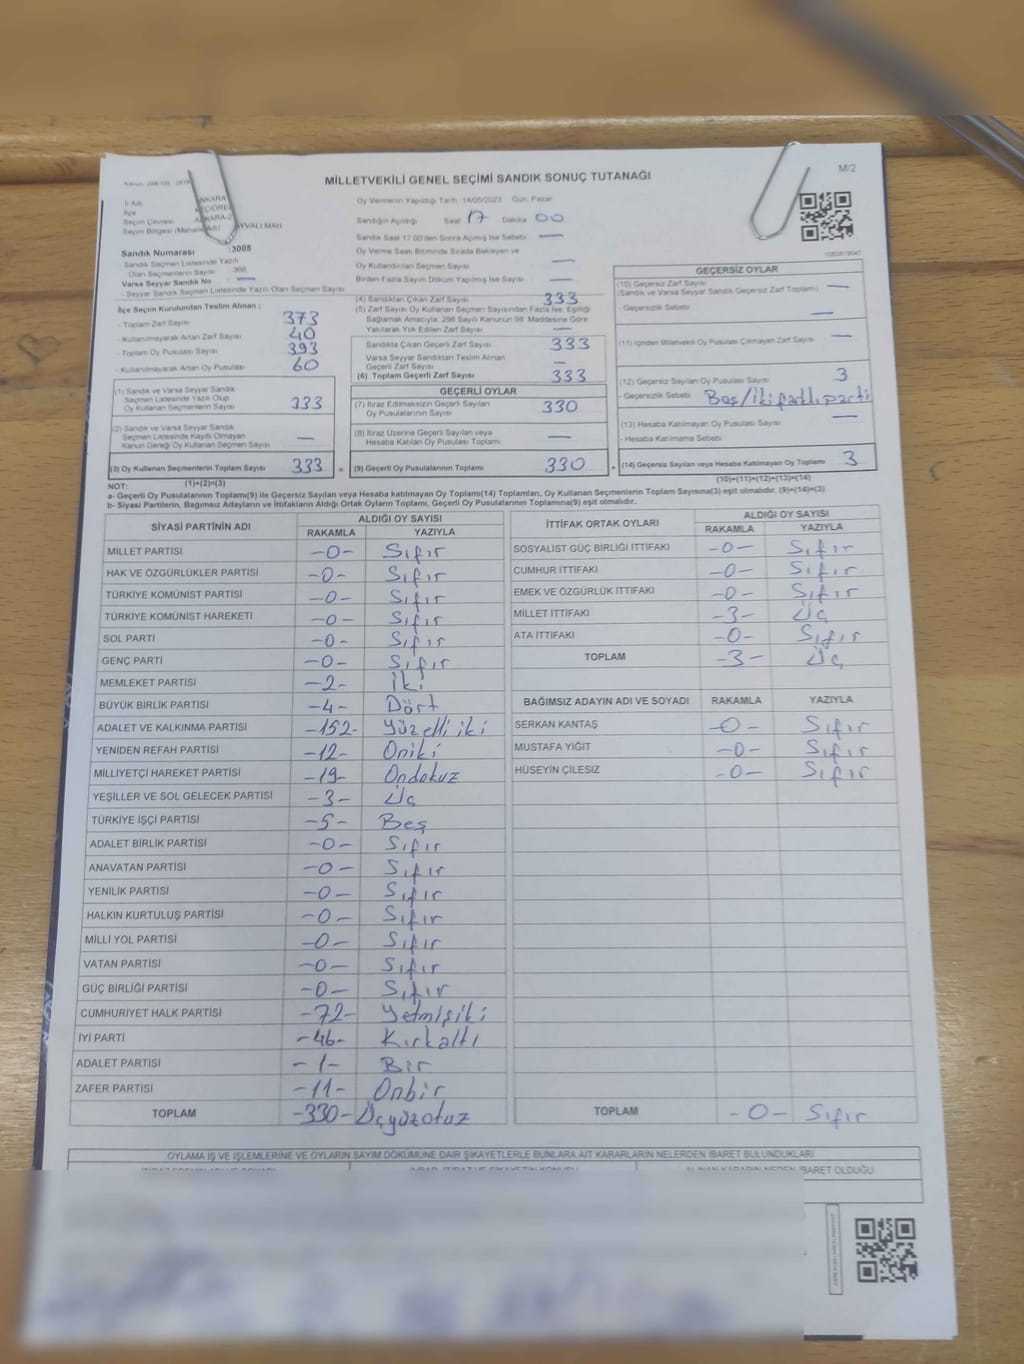 M/2
MİLLETVEKİLİ GENEL SEÇİMİ SANDIK SONUÇ TUTANAĞI
İl Adı ANKARA
İlçe KEÇİÖREN
Seçim Çevresi ANKARA-2
Seçim Bölgesi (Mahalle Adı) AYVALI MAH
Sandık Numarası :3008
- Sandık Seçmen Listesinde Yazılı
Olan Seçmenlerin Sayısı
Varsa Seyyar Sandık No —
- Seyyar Sandık Seçmen Listesinde Yazılı Olan Seçmen Sayısı
İlçe Seçim Kurulundan Teslim Alınan ;
- Toplam Zarf Sayısı 373
- Kullanılmayarak Artan Zarf Sayısı 40
- Toplam Oy Pusulası Sayısı 393
- Kullanılmayarak Artan Oy Pusulası 60
(1) Sandık ve Varsa Seyyar Sandık
Seçmen Listesinde Yazılı Olup
Oy Kullanan Seçmenlerin Sayısı 333
(2) Sandık ve Varsa Seyyar Sandık
Seçmen Listesinde Kayıtlı Olmayan
Kanun Gereği Oy Kullanan Seçmen Sayısı —
(3) Oy Kullanan Seçmenlerin Toplam Sayısı 333 =
(1)+(2)=(3)
Oy Vermenin Yapıldığı Tarih: 14/05/2023 Gün: Pazar
Sandığın Açıldığı Saat 17 Dakika 00
Sandık Saat 17:00'den Sonra Açılmış İse Sebebi —
Oy Verme Saati Bitiminde Sırada Bekleyen ve
Oy Kullandırılan Seçmen Sayısı —
Birden Fazla Sayım Döküm Yapılmış İse Sayısı —
(4) Sandıktan Çıkan Zarf Sayısı 333
(5) Zarf Sayısı Oy Kullanan Seçmen Sayısından Fazla İse, Eşitliği
Sağlamak Amacıyla, 298 Sayılı Kanunun 98. Maddesine Göre
Yakılarak Yok Edilen Zarf Sayısı —
Sandıkla Çıkan Geçerli Zarf Sayısı 333
Varsa Seyyar Sandıktan Teslim Alınan
Geçerli Zarf Sayısı —
(6) Toplam Geçerli Zarf Sayısı 333
GEÇERLİ OYLAR
(7) İtiraz Edilmeksizin Geçerli Sayılan
Oy Pusulalarının Sayısı 330
(8) İtiraz Üzerine Geçerli Sayılan veya
Hesaba Katılan Oy Pusulası Toplamı —
(9) Geçerli Oy Pusulalarının Toplamı 330 +
GEÇERSİZ OYLAR
(10) Geçersiz Zarf Sayısı
(Sandık ve Varsa Seyyar Sandık Geçersiz Zarf Toplamı) —
- Geçersizlik Sebebi —
(11) İçinden Milletvekili Oy Pusulası Çıkmayan Zarf Sayısı —
(12) Geçersiz Sayılan Oy Pusulası Sayısı 3
- Geçersizlik Sebebi Boş/İki farklı parti
(13) Hesaba Katılmayan Oy Pusulası Sayısı —
- Hesaba Katılmama Sebebi
(14) Geçersiz Sayılan veya Hesaba Katılmayan Oy Toplamı 3
(10)+(11)+(12)+(13)=(14)
NOT:
a- Geçerli Oy Pusulalarının Toplamı(9) ile Geçersiz Sayılan veya Hesaba katılmayan Oy Toplamı(14) Toplamları, Oy Kullanan Seçmenlerin Toplam Sayısına(3) eşit olmalıdır. (9)+(14)=(3)
b- Siyasi Partilerin, Bağımsız Adayların ve İttifakların Aldığı Ortak Oyların Toplamı, Geçerli Oy Pusulalarının Toplamına(9) eşit olmalıdır.
SİYASİ PARTİNİN ADI ALDIĞI OY SAYISI
RAKAMLA YAZIYLA
MİLLET PARTİSİ -0- Sıfır
HAK VE ÖZGÜRLÜKLER PARTİSİ -0- Sıfır
TÜRKİYE KOMÜNİST PARTİSİ -0- Sıfır
TÜRKİYE KOMÜNİST HAREKETİ -0- Sıfır
SOL PARTİ -0- Sıfır
GENÇ PARTİ -0- Sıfır
MEMLEKET PARTİSİ -2- İki
BÜYÜK BİRLİK PARTİSİ -4- Dört
ADALET VE KALKINMA PARTİSİ -152- Yüzelli iki
YENİDEN REFAH PARTİSİ -12- Oniki
MİLLİYETÇİ HAREKET PARTİSİ -19- Ondokuz
YEŞİLLER VE SOL GELECEK PARTİSİ -3- Üç
TÜRKİYE İŞÇİ PARTİSİ -5- Beş
ADALET BİRLİK PARTİSİ -0- Sıfır
ANAVATAN PARTİSİ -0- Sıfır
YENİLİK PARTİSİ -0- Sıfır
HALKIN KURTULUŞ PARTİSİ -0- Sıfır
MİLLİ YOL PARTİSİ -0- Sıfır
VATAN PARTİSİ -0- Sıfır
GÜÇ BİRLİĞİ PARTİSİ -0- Sıfır
CUMHURİYET HALK PARTİSİ -72- Yetmişiki
İYİ PARTİ -46- Kırkaltı
ADALET PARTİSİ -1- Bir
ZAFER PARTİSİ -11- Onbir
TOPLAM -330- Üçyüzotuz
İTTİFAK ORTAK OYLARI ALDIĞI OY SAYISI
RAKAMLA YAZIYLA
SOSYALİST GÜÇ BİRLİĞİ İTTİFAKI -0- Sıfır
CUMHUR İTTİFAKI -0- Sıfır
EMEK VE ÖZGÜRLÜK İTTİFAKI -0- Sıfır
MİLLET İTTİFAKI -3- Üç
ATA İTTİFAKI -0- Sıfır
TOPLAM -3- Üç
BAĞIMSIZ ADAYIN ADI VE SOYADI RAKAMLA YAZIYLA
SERKAN KANTAŞ -0- Sıfır
MUSTAFA YİĞİT -0- Sıfır
HÜSEYİN ÇİLESİZ -0- Sıfır
TOPLAM -0- Sıfır
OYLAMA İŞ VE İŞLEMLERİNE VE OYLARIN SAYIM DÖKÜMÜNE DAİR ŞİKAYETLERLE BUNLARA AİT KARARLARIN NELERDEN İBARET BULUNDUKLARI
ALINAN KARARIN NEDEN İBARET OLDUĞU